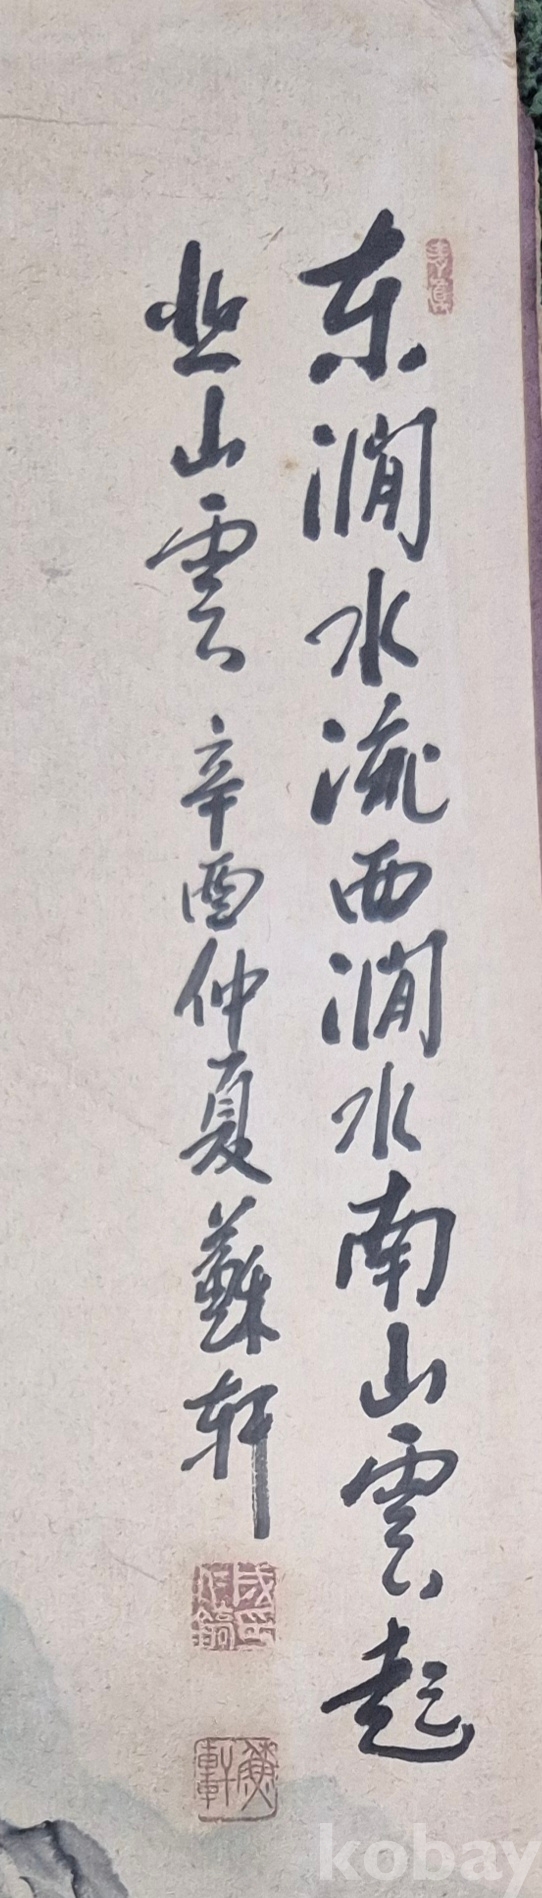 东澗水流西澗水南山雲起
北山雲 辛酉仲夏蘇軒
kobay